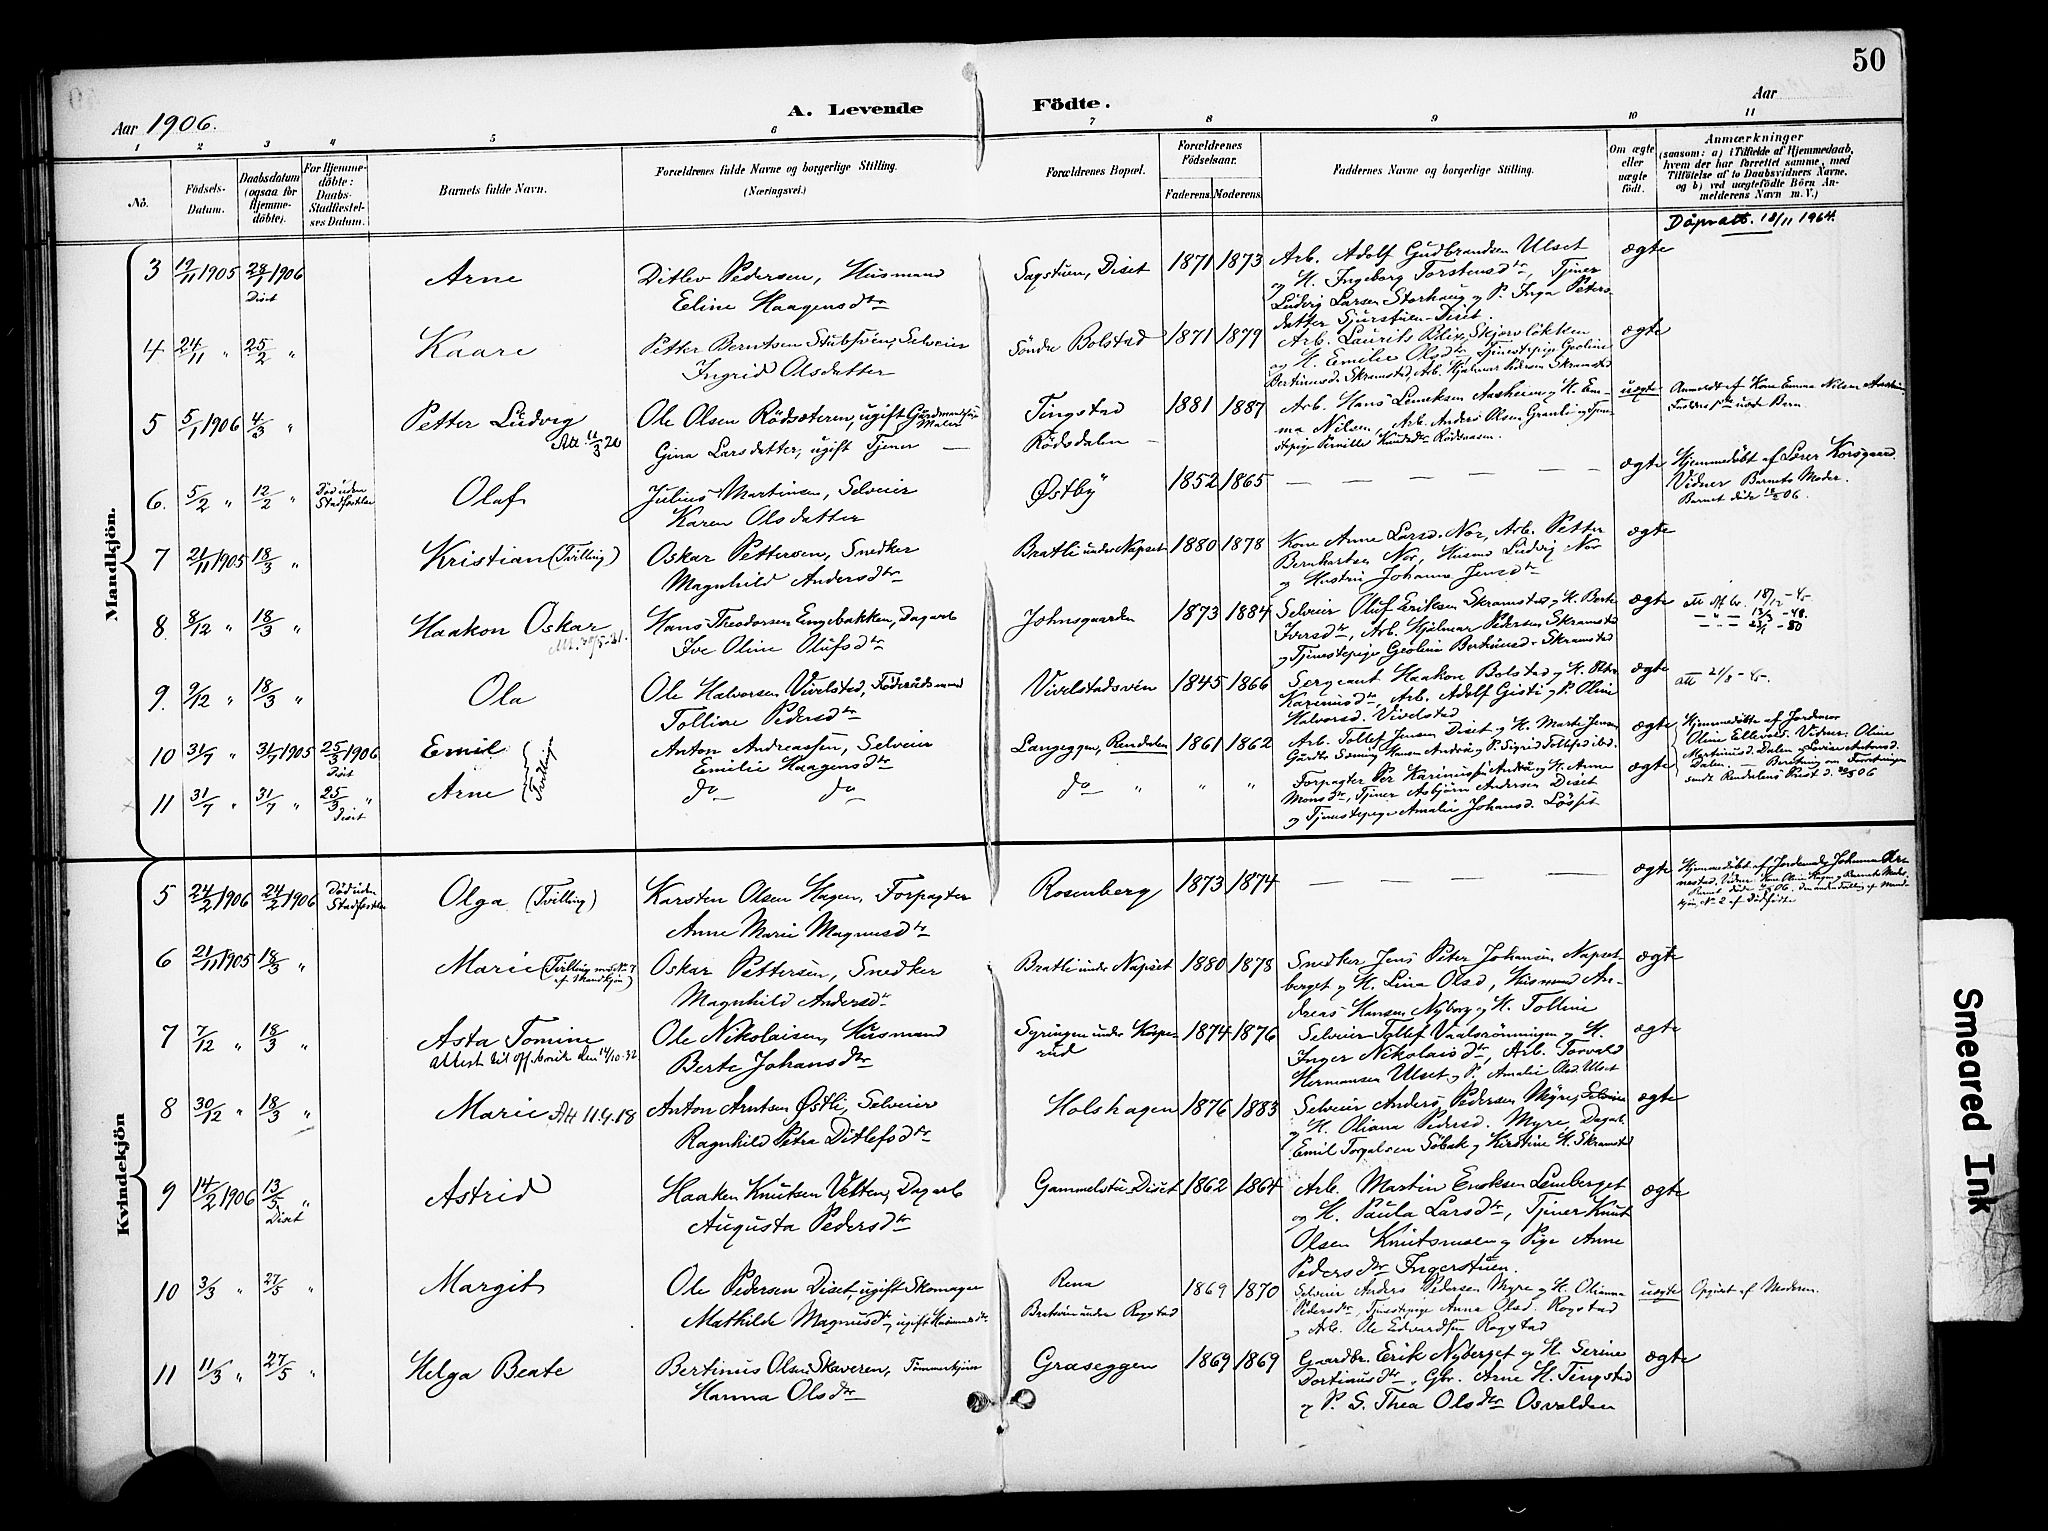 50
Aar 1906.
A. Levende Födte.
Aar
1 2 3 4 5 6 7 8 9 10 11
No.
Födsels-Datum.
Daabsdatum (ogsaa for Hjemmedöbte).
For Hjemmedöbte: Daabs-Stadfæstelses Datum.
Barnets fulde Navn.
Forældrenes fulde Navne og borgerlige Stilling. (Næringsvei.)
Forældrenes Bopæl.
Forældrenes Födselsaar.
Faderens. Moderens.
Faddernes Navne og borgerlige Stilling.
Om ægte eller uægte födt.
Anmærkninger
(saasom: a) i Tilfælde af Hjemmedaab, hvem der har forrettet samme, med Tilföielse af to Daabsvidners Navne, og b) ved uægtefödte Börn Anmelderens Navn m. V.)
Dåpsatt. 18/11 1964.
Mandkjön.
3 19/11 1905 28/1 1906 Diset Arne
Ditlev Pedersen, Husmand
Eline Haagensdtr
Sagstuen, Diset 1871 1873
Arb. Adolf Gudbrandsen Ulset
og H. Ingeborg Torstensdtr, Tjener
Ludvig Larsen Storhaug og P. Inga Peters-
datter Sjurstuen-Diset.
ægte
4 24/11 " 25/2 " Kaare
Petter Berntsen Stubsveen, Selveier
Ingrid Olsdatter
Söndre Bolstad 1871 1879
Arb. Laurits Blix, Skjærvlökken
og H. Emilie Olsdtr, Tjenestepige Geoline
Bertinusd. Skramstad, Arb. Hjalmar Pedersen Skramstad
ægte
5 5/1 1906 4/3 " Petter Ludvig
Att. 11/3 20
Ole Olsen Rödsæteren, ugift
Gina Larsdatter, ugift Tjener —
Tingstad
Rödsdalen —
1881 1887
Arb. Hans Lenersen Aasheim og H. Em-
ma Nilsen, Arb. Anders Olsen Granli og Tjene-
stepige Pernille Knudsdtr Rödsaasen.
uægte
Anmeldt af Kone Emma Nilsen Aasheim
Faderens 1ste uægte Barn.
6. 5/2 " 12/2 " Död uden Stadfæstelse Olaf
Julius Martinsen, Selveier
Karen Olsdatter
Østby 1852 1865 — — — — — —
ægte
Hjemmedöbt af Lærer Korsgaard.
Vidner Barnets Moder.
Barnet döde 12/2 06.
7 21/11 1905 18/3 " Kristian (Tvilling)
Oskar Pettersen, Snedker
Magnhild Andersdtr
Bratli under Napset 1880 1878
Kone Anne Larsd. Nor, Arb. Petter
Bernhartsen Nor, Husmd Ludvig Nor
og Hustru Johanna Jensdtr
ægte
8. 8/12 " 18/3 " Haakon Oskar
Att. 30/5-31.
Hans Theodorsen Engebakken, Dagarb
Ive Oline Olufsdtr
Johnsgaarden 1873 1884
Selveier Oluf Eriksen Skramstad og H. Berte
Iversdtr, Arb. Hjalmar Pedersen Skramstad
og Tjenestepige Geoline Bertinusd. Skramstad
ægte
att. st. br. 18/12-45
— " — 13/3-48.
— " — 23/1-50
9. 9/12 " 18/3 " Ola
Ole Halvorsen Vivelstad, Föderaadsmand
Tolline Pedersdtr
Vivelstadsvén 1845 1866
Sergeant Haakon Bolstad og H. Petra
Karinusdtr, Arb. Adolf Gisti og P. Oline
Halvorsd. Vivelstad
ægte
att 21/8-45.
10 31/7 " 31/7 1905 25/3 1906 Diset Emil
(Tvilling)
Anton Andreassen, Selveier
Emilie Haagensdtr
Langeggen, Rendalen 1861 1862
Arb. Tollef Jensen Diset og H. Marte Jensen
Gaardbr. Sönning Hansen Andrå og P. Sigrid Tollefsd. ibd.
ægte
Hjemmedöbte af Jordmor
Oline Ellevold. Vidner: Oline
Martinusd. Dalen og Lovise Antonsd.
Dalen. — Beretning om Forretningen
sendt Rendalens Præst d. 28/3 06
11 31/7 " 31/7 " 25/3 " Diset Arne
do do
do " " "
Forpagter Per Karinussen Andrå og H. Anne
Monsdtr, Tjener Asbjörn Andersen Diset
og Tjenestepige Amalie Johansd. Lösset
ægte
Kvindekjön
5 24/2 1906 24/2 1906 Död uden Stadfæstelse Olga (Tvilling)
Karsten Olsen Hagen, Forpagter
Anne Marie Magnusdtr
Rosenberg 1873 1874 — — — — —
ægte
Hjemmedöbt af Jordemoder Johanna
Vidner: Kone Oline Hagen og Barnets Moder.
6 21/11 1905 18/3 " Marie (Tvilling med No 7 af Mandkjön)
Oskar Pettersen, Snedker
Magnhild Andersdtr
Bratli under Napset 1880 1878
Snedker Jens Peter Johansen Napset-
berget og H. Lina Olsd, Husmand An-
dreas Hansen Nyborg og H. Tolline
ægte
7 7/12 " 18/3 " Asta Tomine
Attest til off. bruk den 14/10-32
Ole Nikolaisen, Husmand
Berte Johansdtr
Syringen under Kope-
rud
1874 1876
Selveier Tollef Vaalsrönningen og H.
Inger Nikolaisdtr, Arb. Torvald
Hermansen Ulset og P. Amalie Olsd. Ulset
ægte
8 30/12 " 18/3 " Marie Att 11.4.18
Anton Arntsen Østli, Selveier
Ragnhild Petra Ditlefsdtr
Holshagen 1876 1883
Selveier Anders Pedersen Myre, Selveier
og H. Oliana Pedersd. Myre, Dagarb.
Emil Torgalsen Söbak og Kirstine H. Skramstad
ægte
9 14/2 1906 13/5 " Diset Astrid
Haaken Knutsen Velten, Dagarb
Augusta Pedersdtr
Gammelstu-Diset 1862 1864
Arb. Martin Enoksen Lemberget
og H. Paula Larsdtr, Tjener Knut
Olsen Knutsmoen og Pige Anne
Pedersdtr Ingerstuen.
ægte
10 3/3 " 27/5 " Margit
Ole Pedersen Diset, ugift Skomager
Mathilde Magnusdtr, ugift Husmandsdtr
Rena
Brekveen under Rogstad
1869 1870
Selveier Anders Pedersen Myre og H. Olianna
Pedersdtr, Tjenestepige Anna Olsd. Rogstad
og Arb. Ole Edvardsen Rogstad
uægte
Opgivet af Moderen.
11 11/3 " 27/5 " Helga Beate
Bertinus Olsen Skaveren, Tömmerkjörer
Hanna Olsdtr
Graseggen 1869 1869
Gaardbr. Erik Nyberget og H. Serine
Dortiausdtr, Gbr. Arne H. Tingstad
og P. S. Thea Olsdtr Osvalden
ægte
Smeared Ink